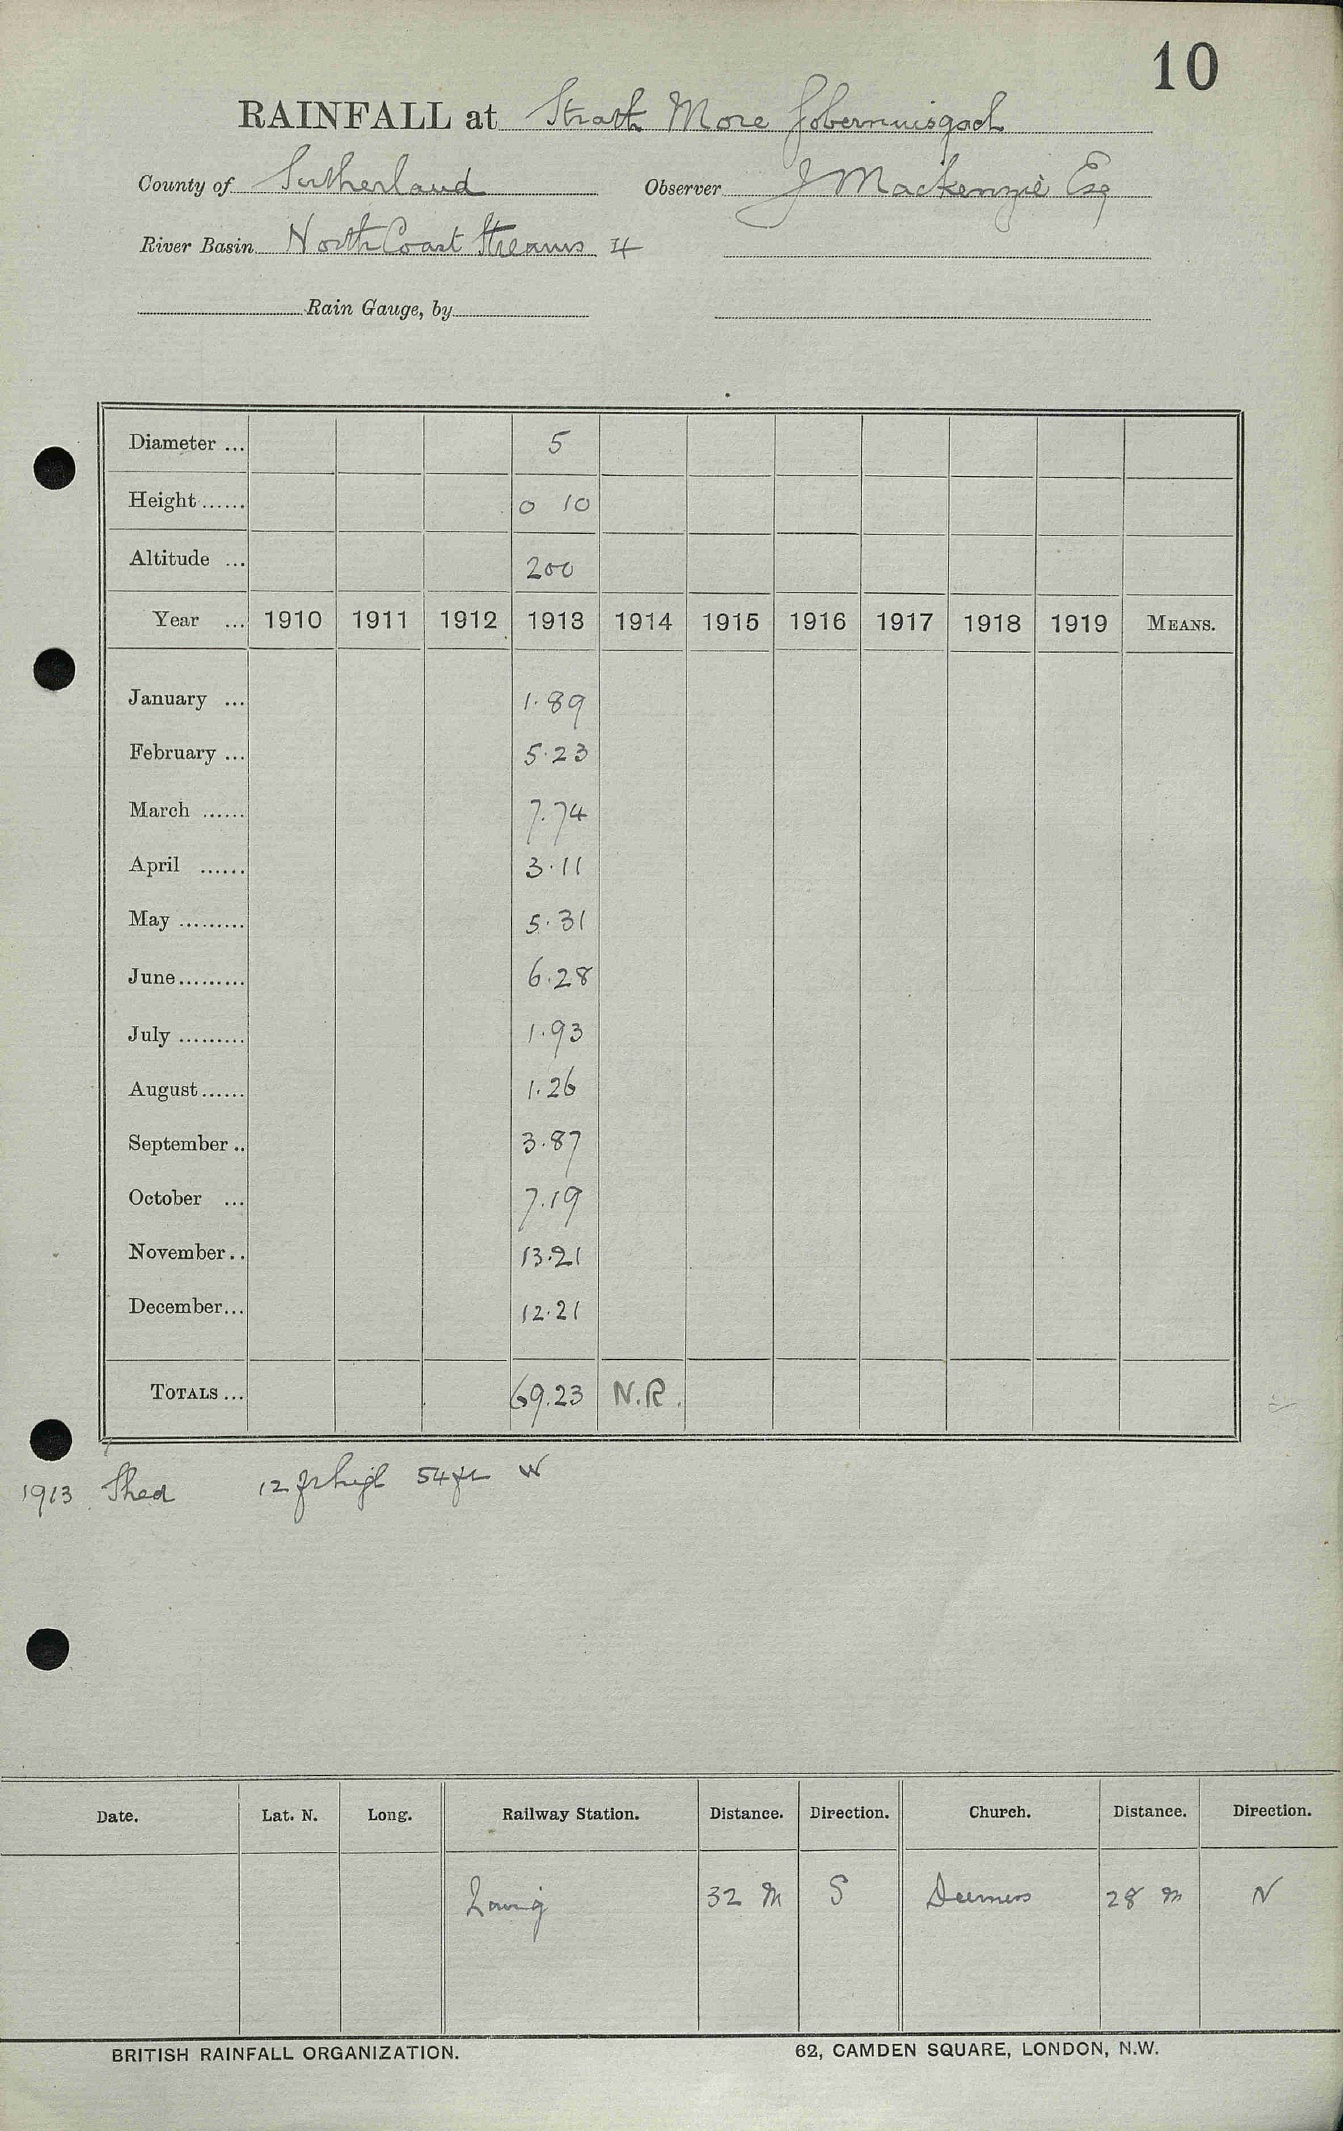 10
RAINFALL at Strath More Gobernuisgach
County of Sutherland Observer J Mackenzie Esq
River Basin North Coast Streams 4
Rain Gauge, by
Diameter ... 5
Height ...... 0 10
Altitude ... 200
Year ... 1910 1911 1912 1913 1914 1915 1916 1917 1918 1919 MEANS.
January ... 1.89
February ... 5.23
March ...... 7.74
April ...... 3.11
May ......... 5.31
June ......... 6.28
July ......... 1.93
August ...... 1.26
September .. 3.87
October ... 7.19
November .. 13.21
December ... 12.21
TOTALS ... 69.23 N.R.
1913 Shed 12 ft high 54 ft W
Date. Lat. N. Long. Railway Station. Distance. Direction. Church. Distance. Direction.
Lairg 32 m S 28 m N
BRITISH RAINFALL ORGANIZATION. 62, CAMDEN SQUARE, LONDON, N.W.